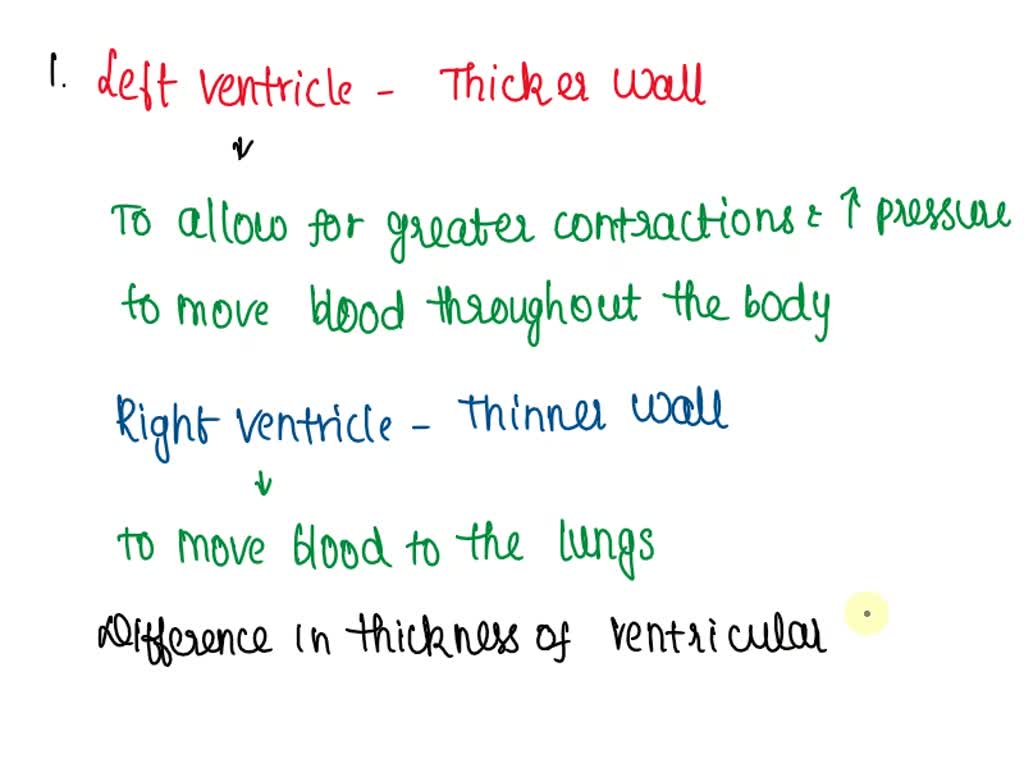 1. Left ventricle - Thicker wall
↓
To allow for greater contractions & ↑ pressure
to move blood throughout the body
Right ventricle - Thinner wall
↓
to move blood to the lungs
Difference in thickness of ventricular